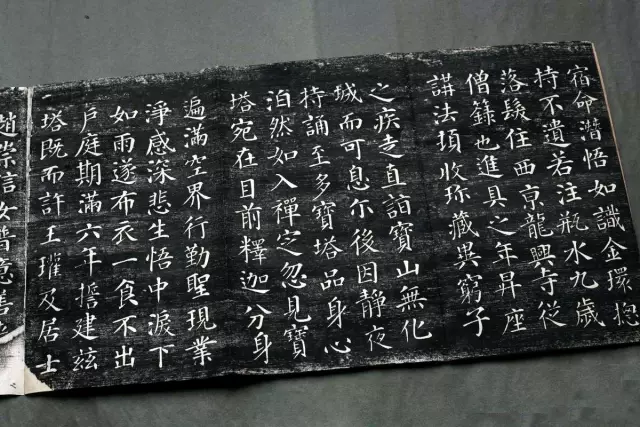 宿命潛悟如識金環揔
持不遺若注瓶水九歲
落髮住西京龍興寺從
僧籙也進具之年昇座
講法頓收珎藏異窮子
之疾走直詣寶山無化
城而可息尒後因靜夜
持誦至多寶塔品身心
泊然如入禪定忽見寶
塔宛在目前釋迦分身
遍滿空界行勤聖現業
淨感深悲生悟中淚下
如雨遂布衣一食不出
戶庭期滿六年誓建茲
塔既而許王瓘及居士
趙崇信女普意善